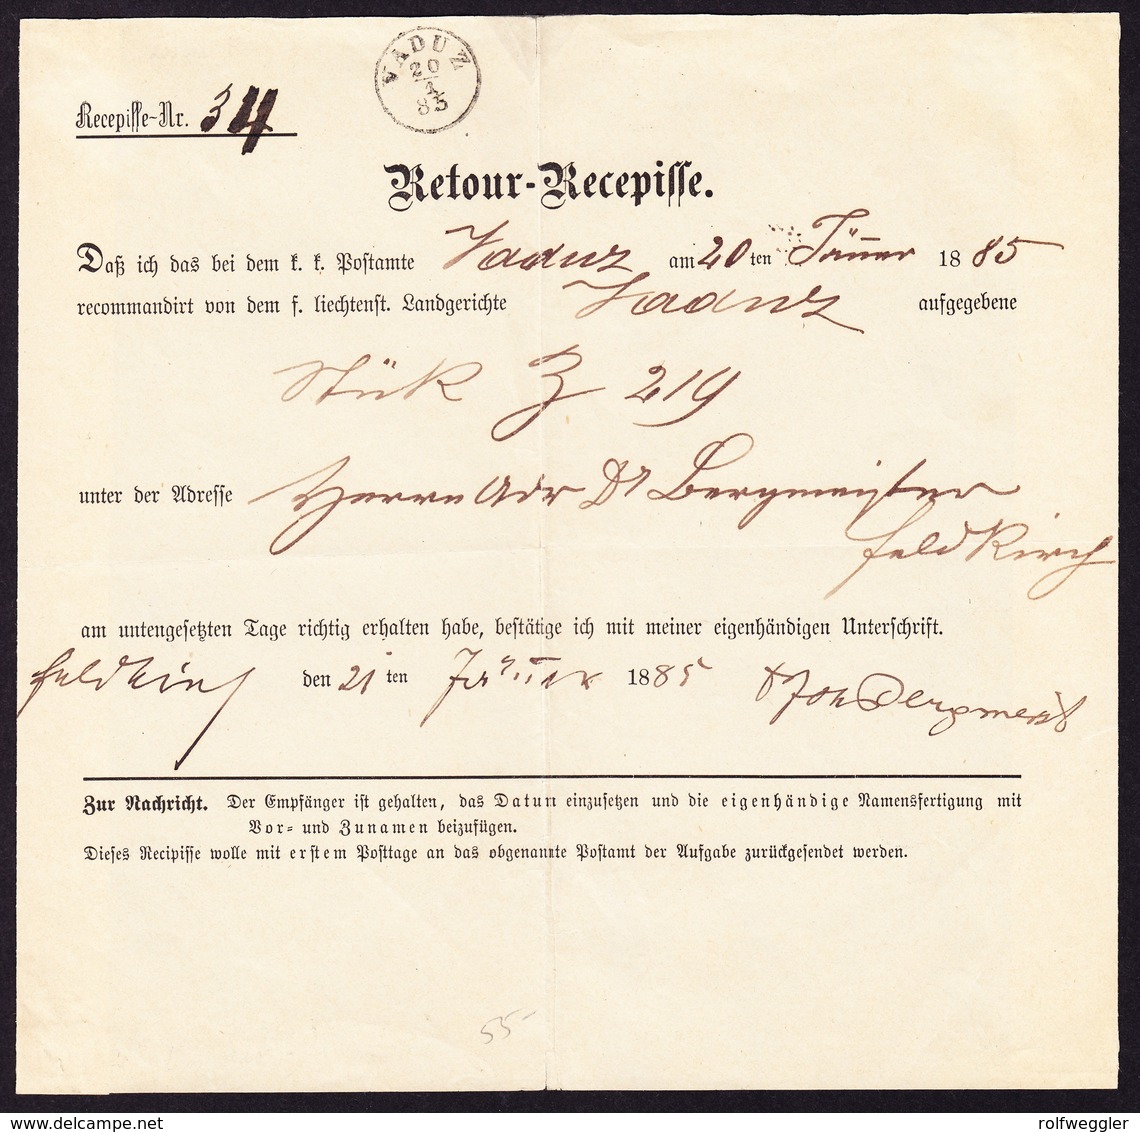 VADUZ
20
1
85
Recepisse-Nr. 34
Retour-Recepisse.
Daß ich das bei dem k. k. Postamte Vaduz am 20 ten Jänner 1885
recommandirt von dem f. liechtenst. Landgerichte Vaduz aufgegebene
Stük Z 219
unter der Adresse Herrn Adv Dr Bergmeister
Feldkirch
am untengesetzten Tage richtig erhalten habe, bestätige ich mit meiner eigenhändigen Unterschrift.
Feldkirch den 21 ten Jänner 1885 Bergmeist
Zur Nachricht. Der Empfänger ist gehalten, das Datum einzusetzen und die eigenhändige Namensfertigung mit
Vor- und Zunamen beizufügen.
Dieses Recipisse wolle mit erstem Posttage an das obgenannte Postamt der Aufgabe zurückgesendet werden.
55-
delcampe.net
rolfweggler